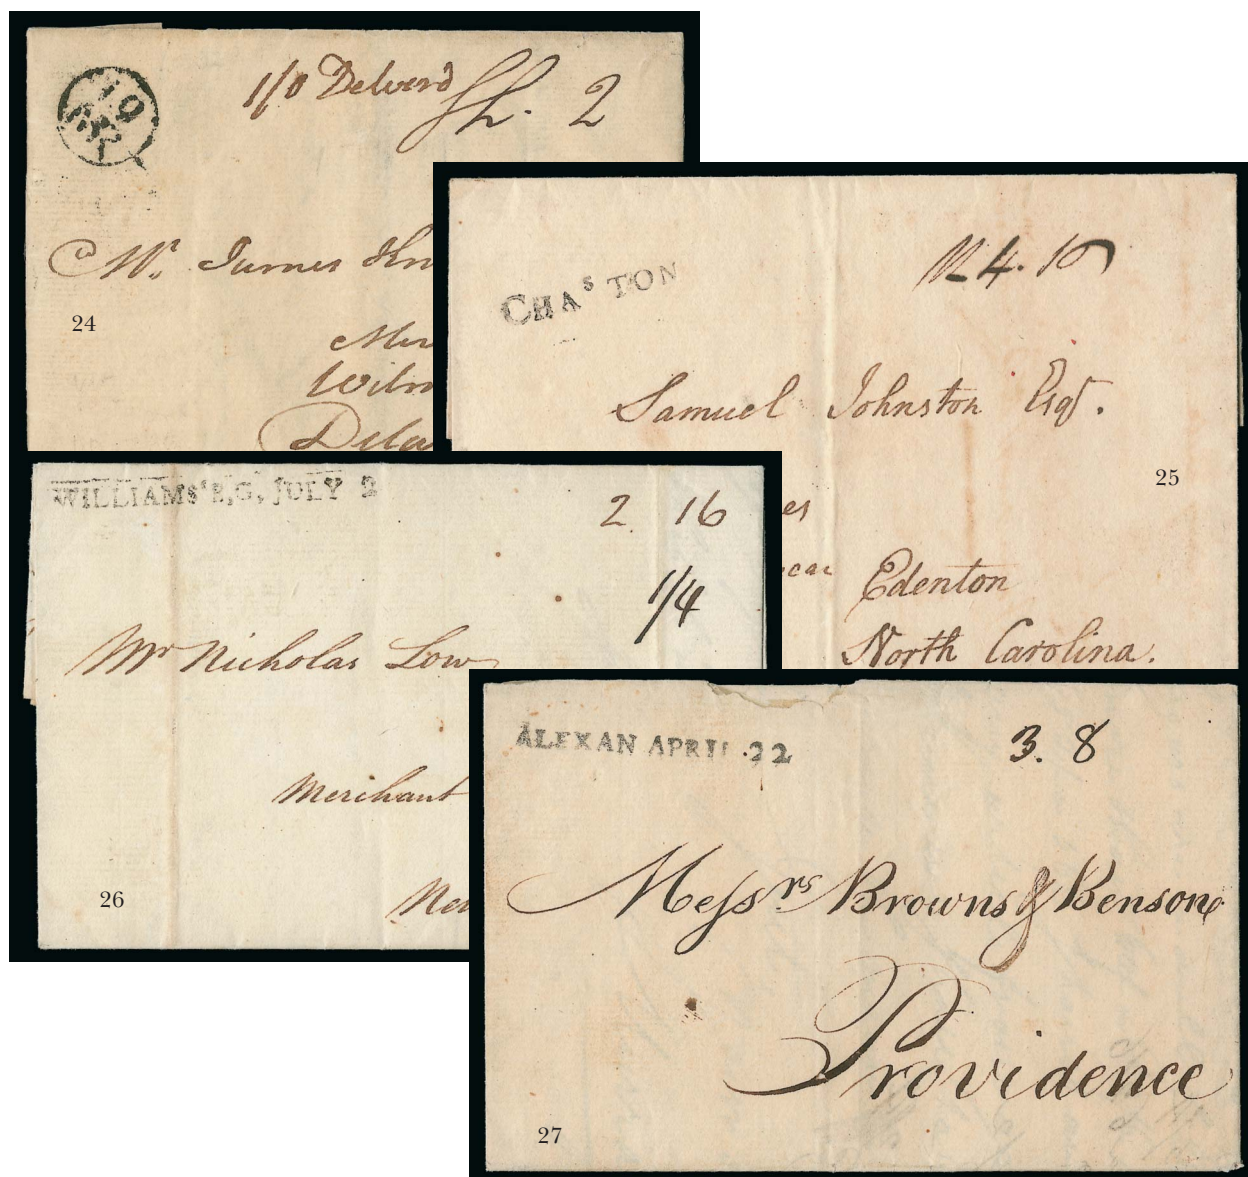 1/0 Deliverd Sh. 2
19
Mr. James
24
CHAS TON
4.10
Samuel Johnston Esqr.
25
es
Edenton
North Carolina.
WILLIAMSB,G, JULY 2
2 16
1/4
Mr Nicholas Low
Merchant
26
ALEXAN APRIL 22
3. 8
Messrs Browns & Benson
Providence
27